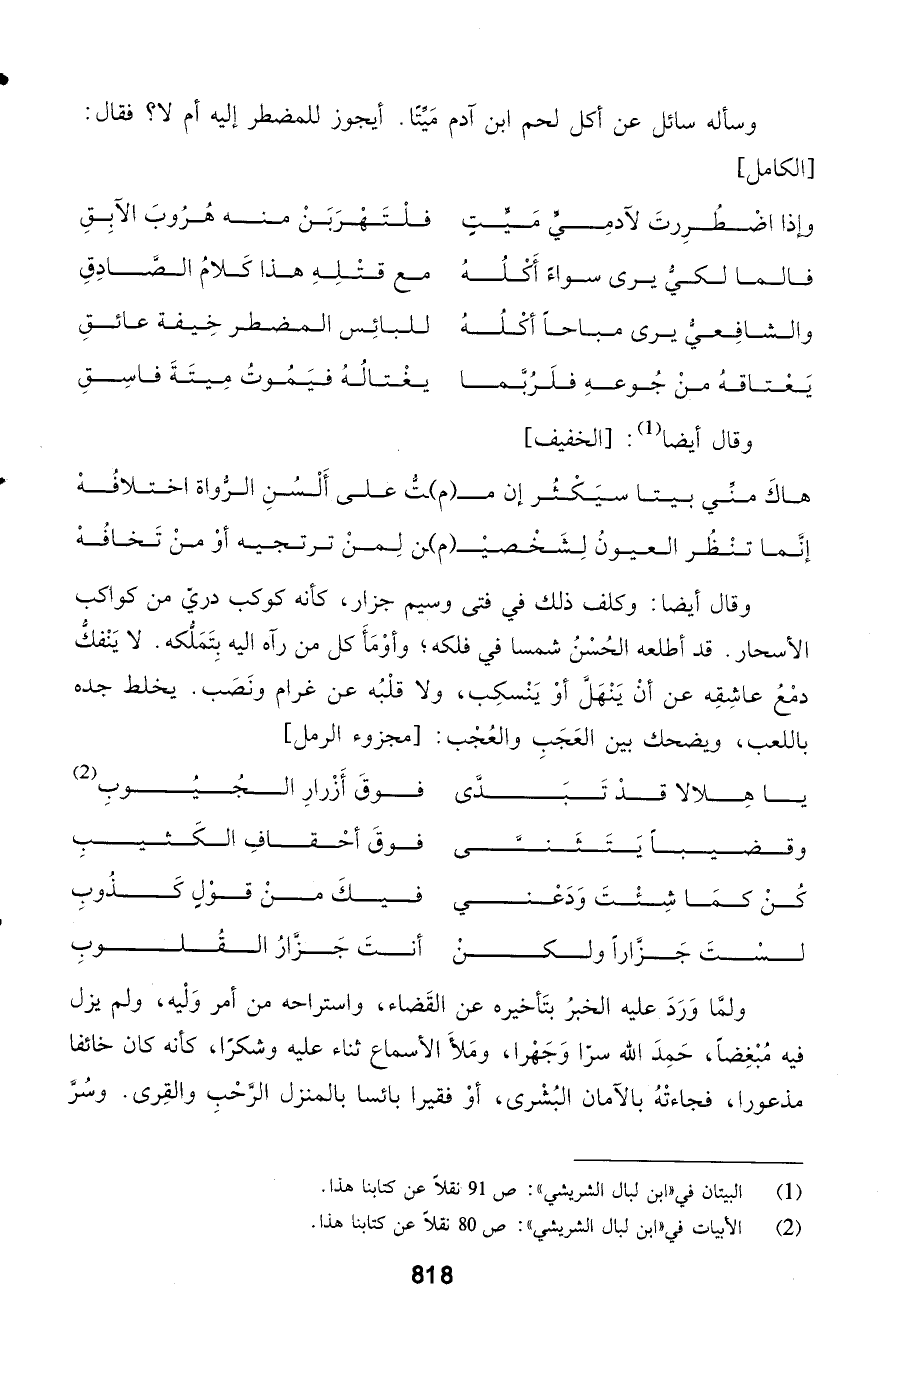 وسأله سائل عن أكل لحم ابن آدم مَيِّتًا. أيجوز للمضطر إليه أم لا؟ فقال:
[الكامل]
وإذا اضطررت لآدميٍّ مَيِّتٍ فلتهربَنْ منه هُرُوبَ الآبق
فالمالكيُّ يرى سواءً أكْلَهُ مع قتله هذا كَلامُ الصَّادق
والشافعيُّ يرى مباحاً أكْلَهُ للبائس المضطر خيفة عائق
يَقْتاتُهُ منْ جُوعه فلَرُبَّما يغْتالُهُ فيَمُوتُ ميتَةَ فاسِق
وقال أيضا(1): [الخفيف]
هاكَ منِّي بيتا سيَكْثُر إن مـ(م)ـتُّ على ألْسُن الرُّواة اختلافُهْ
إنَّما تنْظُر العيونُ لشَخْصَيْـ(م)ـن لمن ترتجيه أوْ منْ تَخافُهْ
وقال أيضا: وكلف ذلك في فتى وسيم جزار، كأنه كوكب دريّ من كواكب
الأسحار. قد أطلعه الحُسْنُ شمسا في فلكه؛ وأوْمَأ كل من رآه اليه بتمَلُّكه. لا يَنْفَكُّ
دمْعُ عاشقه عن أنْ يَنْهَلَّ أوْ يَنْسكب، ولا قلْبُه عن غرام ونَصَب. يخلط جده
باللعب، ويضحك بين العَجَب والعُجْب: [مجزوء الرمل]
يا هلالا قدْ تَبَدَّى فوقَ أزْرار الجُيُوبِ(2)
وقضيباً يَتَثَنَّى فوقَ أحْقافِ الكَثيبِ
كُنْ كمَا شئْتَ ودَعْني فيك منْ قوْلِ كَذُوبِ
لسْتَ جَزَّاراً ولكنْ أنتَ جَزَّارُ القُلوبِ
ولمَّا وَرَدَ عليه الخبرُ بتأخيره عن القَضاء، واستراحه من أمر وَلِيَه، ولم يزل
فيه مُبْغِضاً، حَمِدَ الله سرّا وَجَهْرا، ومَلأ الأسماع ثناء عليه وشكرًا، كأنه كان خائفا
مذعورا، فجاءتْهُ بالأمان البُشْرى، أوْ فقيرا بائسا بالمنزل الرَّحْب والقِرى. وسُرَّ
(1) البيتان في «ابن لبال الشريشي»: ص 91 نقلاً عن كتابنا هذا.
(2) الأبيات في «ابن لبال الشريشي»: ص 80 نقلاً عن كتابنا هذا.
818